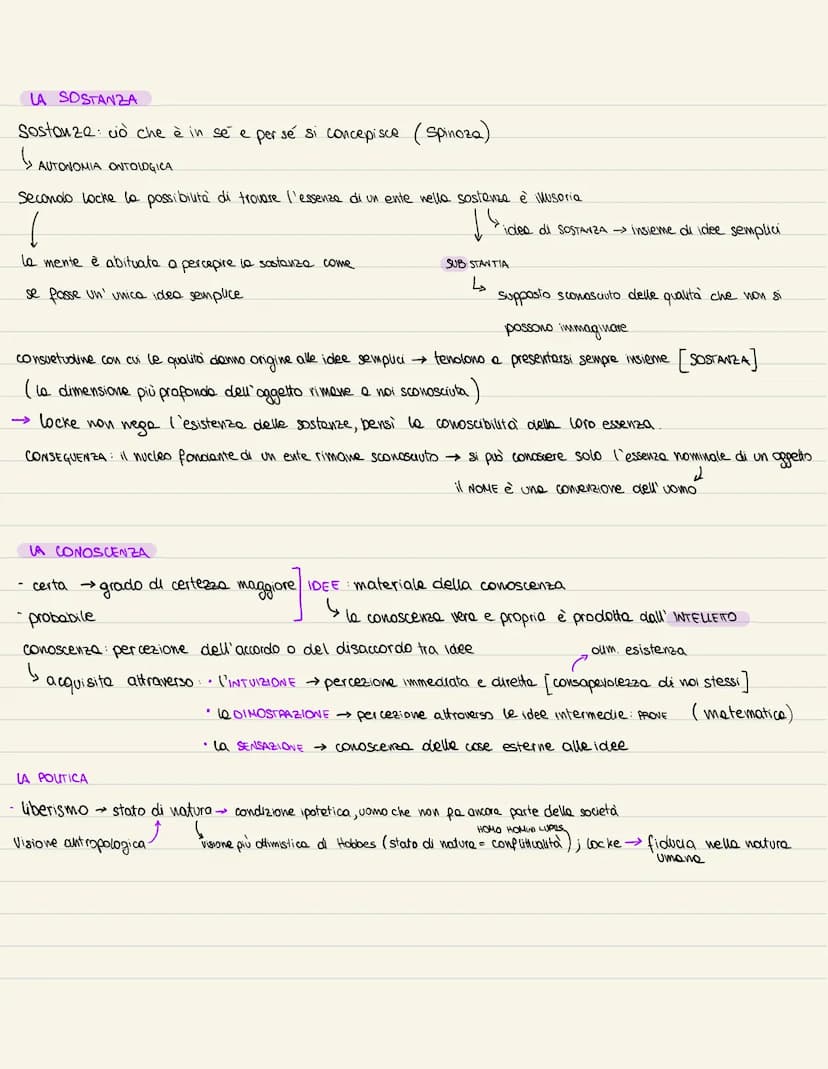 LA SOSTANZA
Sostanza: ciò che è in sé e per sé si concepisce (Spinoza)
↳ AUTONOMIA ONTOLOGICA
Secondo Locke la possibilità di trovare l'essenza di un ente nella sostanza è illusoria
idea di SOSTANZA → insieme di idee semplici
la mente è abituata a percepire la sostanza come
se fosse un' unica idea semplice
SUB STANTIA
↳ supposto sconosciuto delle qualità che non si
possono immaginare
consuetudine con cui le qualità danno origine alle idee semplici → tendono a presentarsi sempre insieme [SOSTANZA]
(la dimensione più profonda dell'oggetto rimane a noi sconosciuta)
→ Locke non nega l'esistenza delle sostanze, bensì la conoscibilità della loro essenza.
CONSEGUENZA: il nucleo fondante di un ente rimane sconosciuto → si può conoscere solo l'essenza nominale di un oggetto
il NOME è una convenzione dell' uomo
LA CONOSCENZA
- certa → grado di certezza maggiore] IDEE: materiale della conoscenza
- probabile ↳ la conoscenza vera e propria è prodotta dall' INTELLETTO
conoscenza: percezione dell'accordo o del disaccordo tra idee
↳ acquisita attraverso: • l'INTUIZIONE → percezione immediata e diretta [consapevolezza di noi stessi]
esistenza
• la DIMOSTRAZIONE → percezione attraverso le idee intermedie: PROVE (matematica)
• la SENSAZIONE → conoscenza delle cose esterne alle idee
LA POLITICA
- liberismo → stato di natura → condizione ipotetica, uomo che non fa ancora parte della società
HOMO HOMINI LUPUS
Visione antropologica visione più ottimistica di Hobbes (stato di natura = conflittualità); Locke → fiducia nella natura
umana